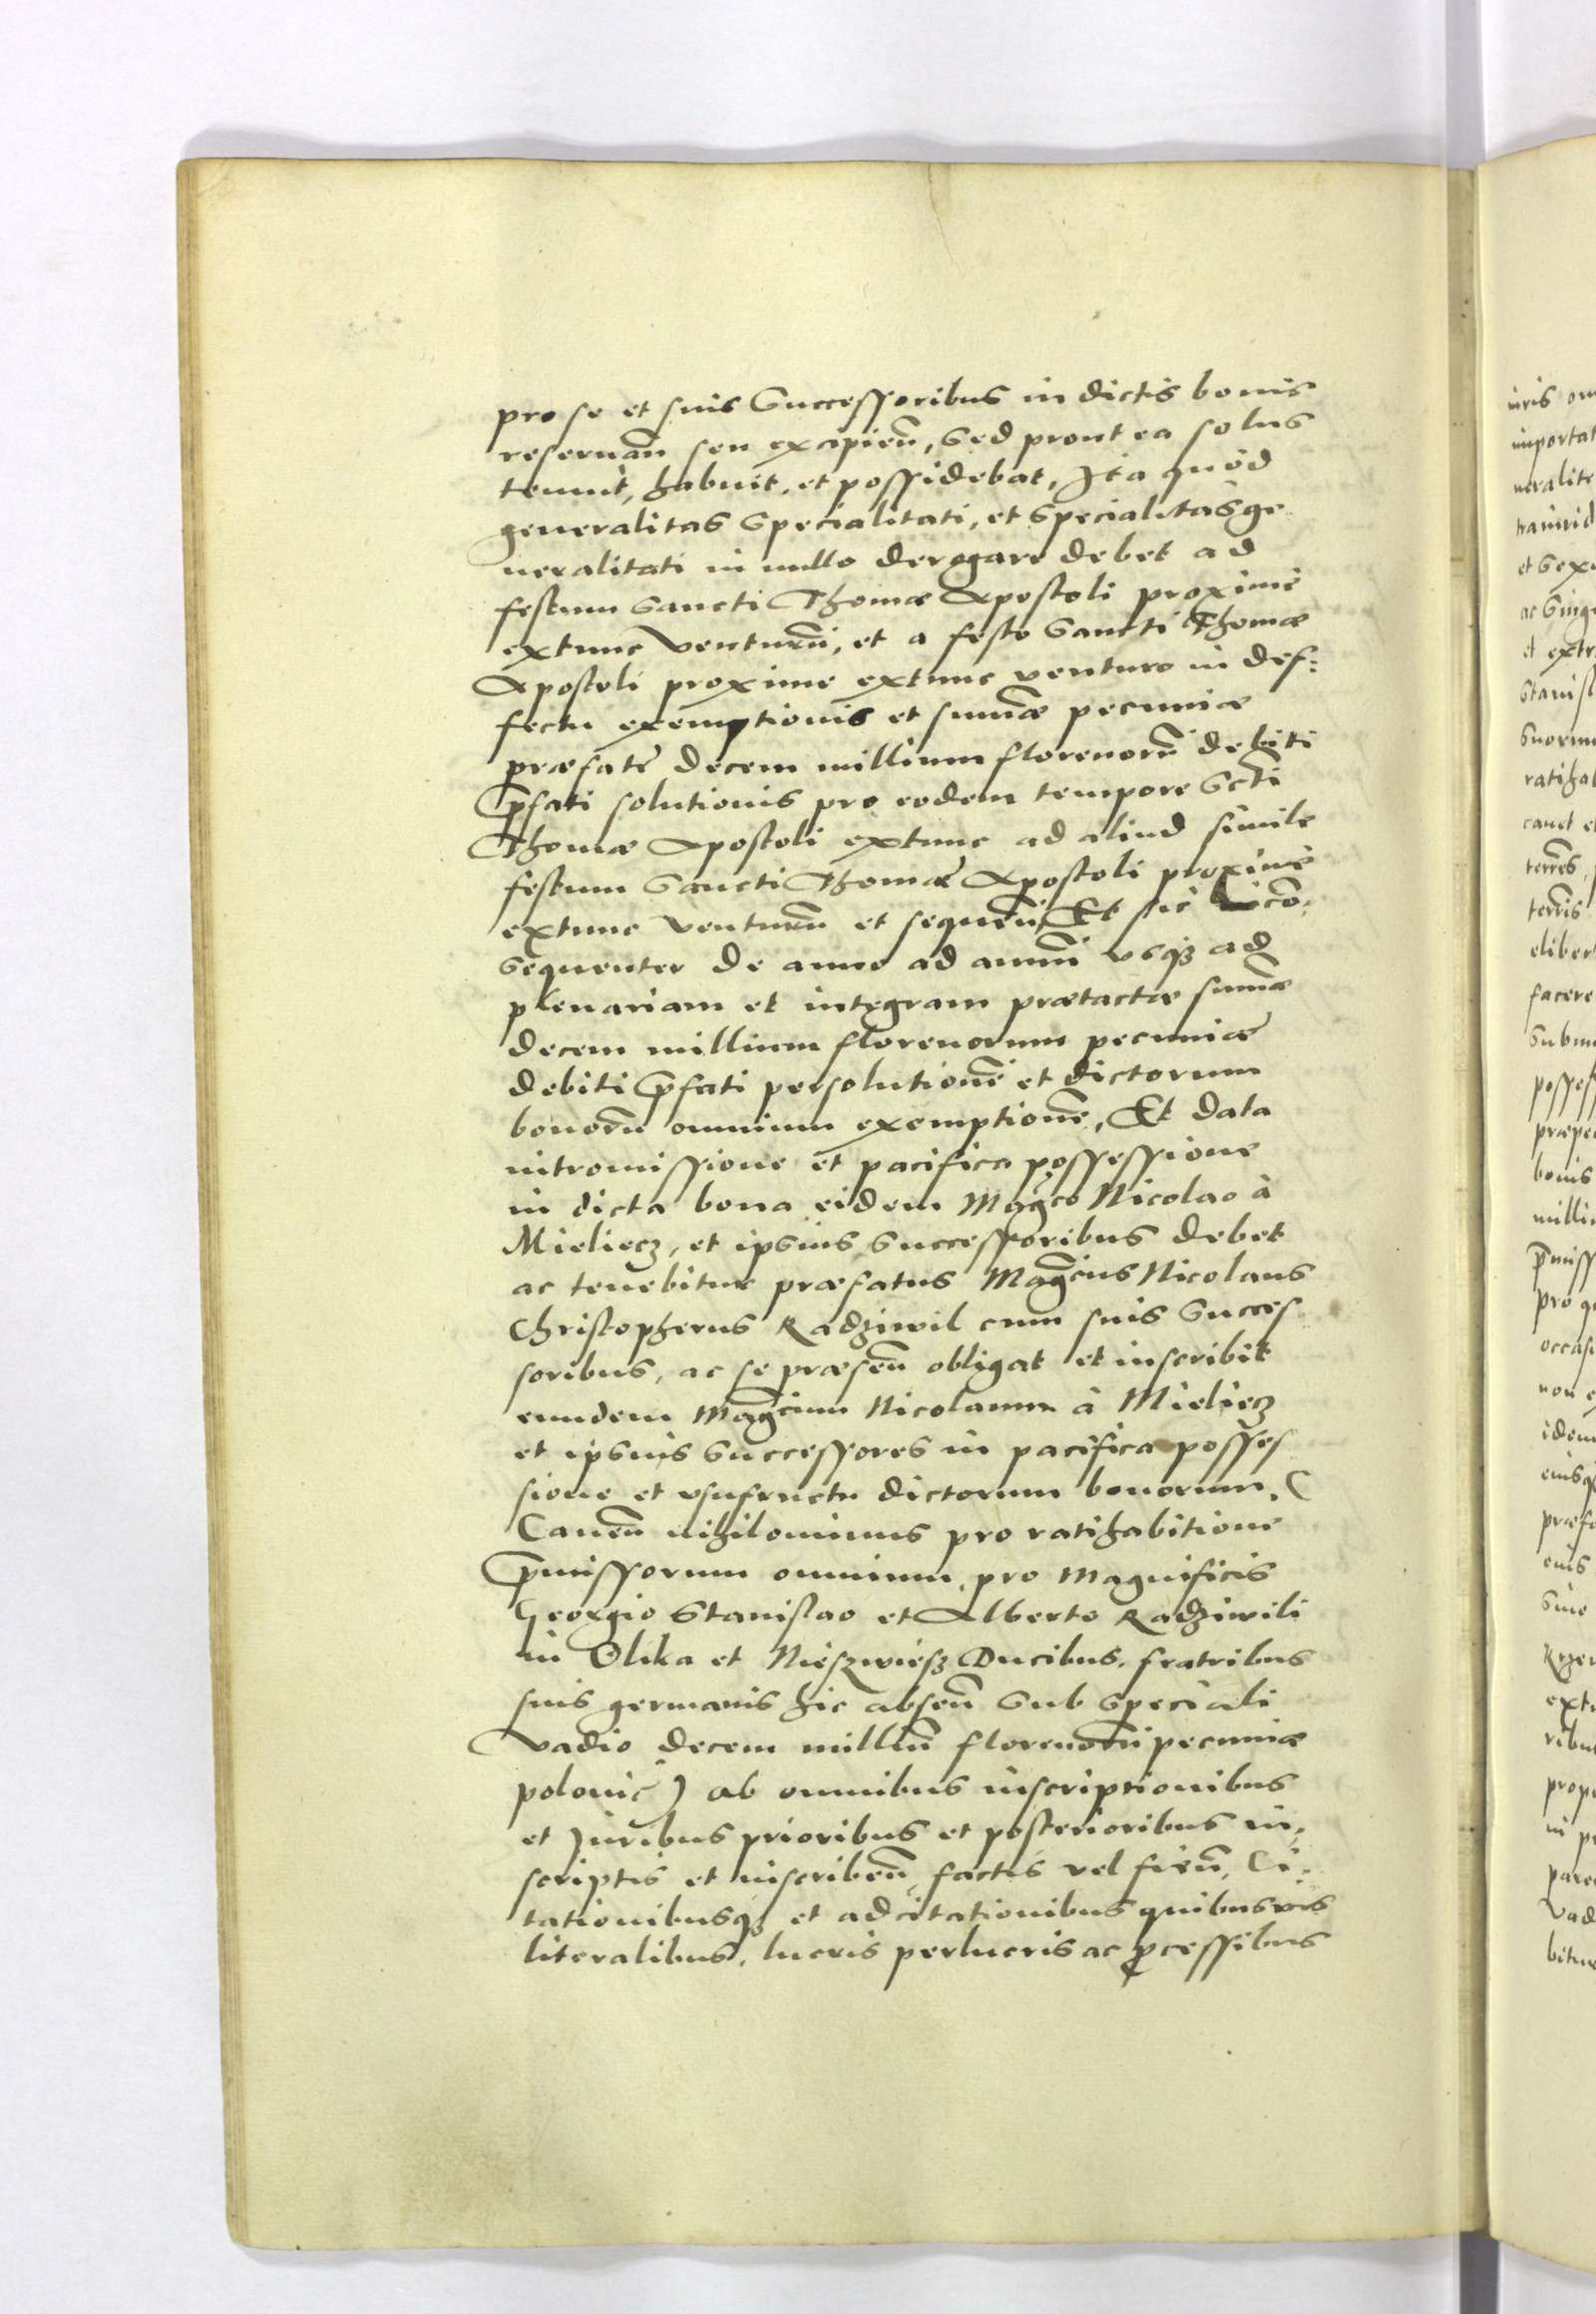 pro se et suis Successoribus in dictis bonis
reseruan̄ seu excipien̄, sed prout ea solus
tenuit, habuit, et possidebat, Ita quod
generalitas specialitati, et specialitas ge
neralitati in nullo derogare debet ad
festum Sancti Thomæ Apostoli proxime
extunc venturū, et a festo Sancti Thomæ
Apostoli proxime extunc venturo in def:
fectu exemptionis et summæ pecuniæ
præfatę decem millium florenorū debiti
p̄fati solutionis pro eodem tempore Sc̄ti
Thomæ Apostoli extunc ad aliud simile
festum Sancti Thomæ Apostoli proxime
extunc venturū et sequen̄, Et sic co̅:
sequenter de anno ad annū vsqȝ ad
plenariam et integram prætactæ summæ
decem millium florenorum pecuniæ
debiti p̄fati persolutionē et dictorum
bonorū omnium exemptionē, Et data
intromissione et pacifica possessione
in dicta bona eidem Magco Nicolao à
Mieliecz, et ipsius successoribus debet
ac tenebitur præfatus Magcius Nicolaus
Christopherus Radziwil cum suis Succes
soribus, ac se præsen̄ obligat et inscribit
eundem Magcium Nicolaum à Mieliecz
et ipsius successores in pacifica posses
sione et vsufructu dictorum bonorum. (
Cauen̄ nihilominus pro ratihabitione
p̄missorum omnium, pro Magnificis
Georgio Stanislao et Alberto Radziwili
in Olika et Nieszwiesz Ducibus, fratribus
suis germanis hic absen̄ sub speciali
vadio decem milliū florenorū pecuniæ
polonic̄) ab omnibus inscriptionibus
et Juribus prioribus et posterioribus in,
scriptis et inscriben̄ factis vel fien̄, Ci:
tationibusqȝ et adcitationibus quibusvis
literalibus, lucris perlucris ac ꝓcessibus